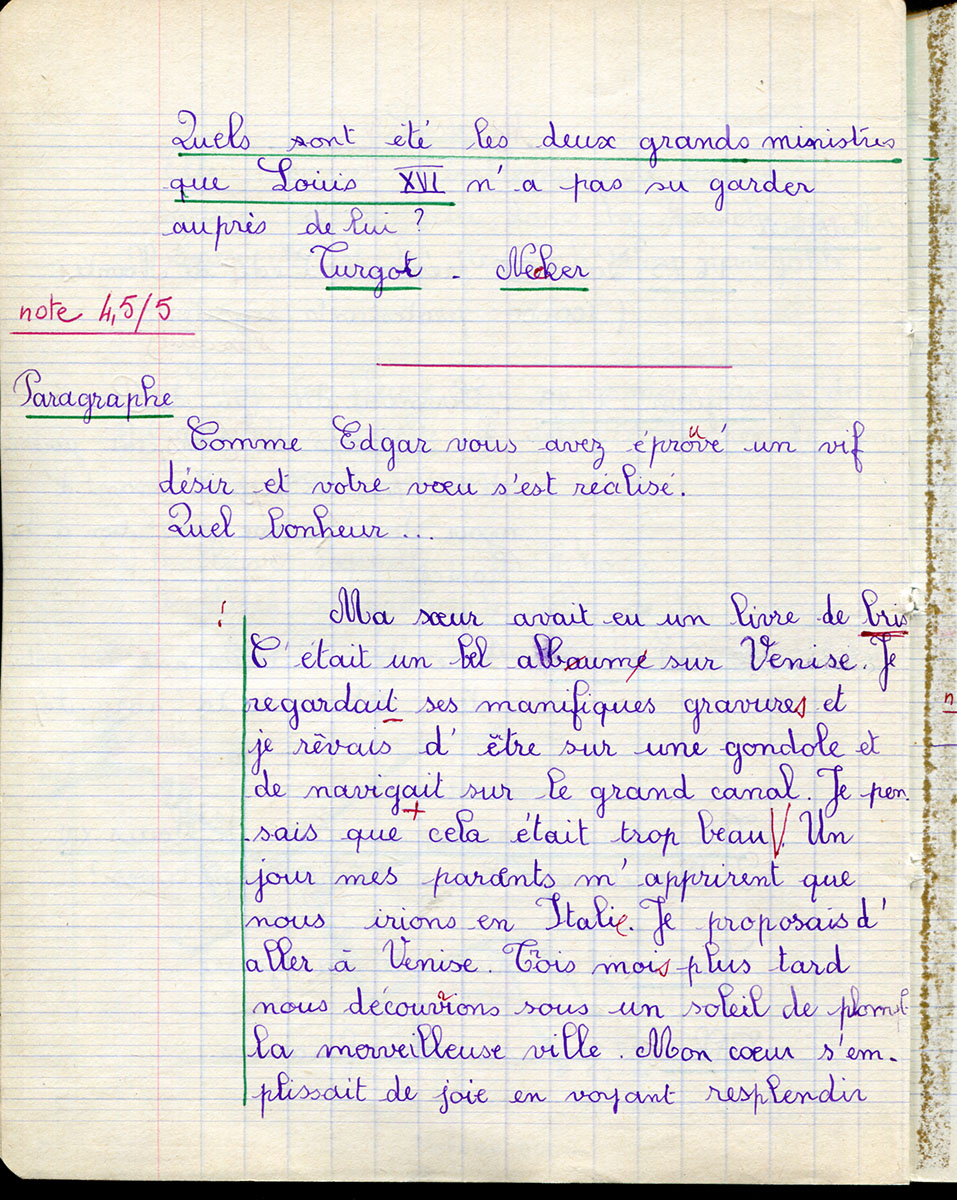 Quels sont été les deux grands ministres
que Louis XVI n'a pas su garder
auprès de lui ?
Turgot - Necker
note 4,5/5
Paragraphe
Comme Edgar vous avez éprouvé un vif
désir et votre vœu s'est réalisé.
Quel bonheur ...
Ma sœur avait eu un livre de bris
C'était un bel albaume sur Venise. Je
regardait ses manifiques gravures et
je rêvais d'être sur une gondole et
de navigait sur le grand canal. Je pen-
sais que cela était trop beau ! Un
jour mes parents m'apprirent que
nous irions en Italie. Je proposais d'
aller à Venise. Trois mois plus tard
nous découvrions sous un soleil de plomb
la merveilleuse ville. Mon coeur s'em-
plissait de joie en voyant resplendir
n